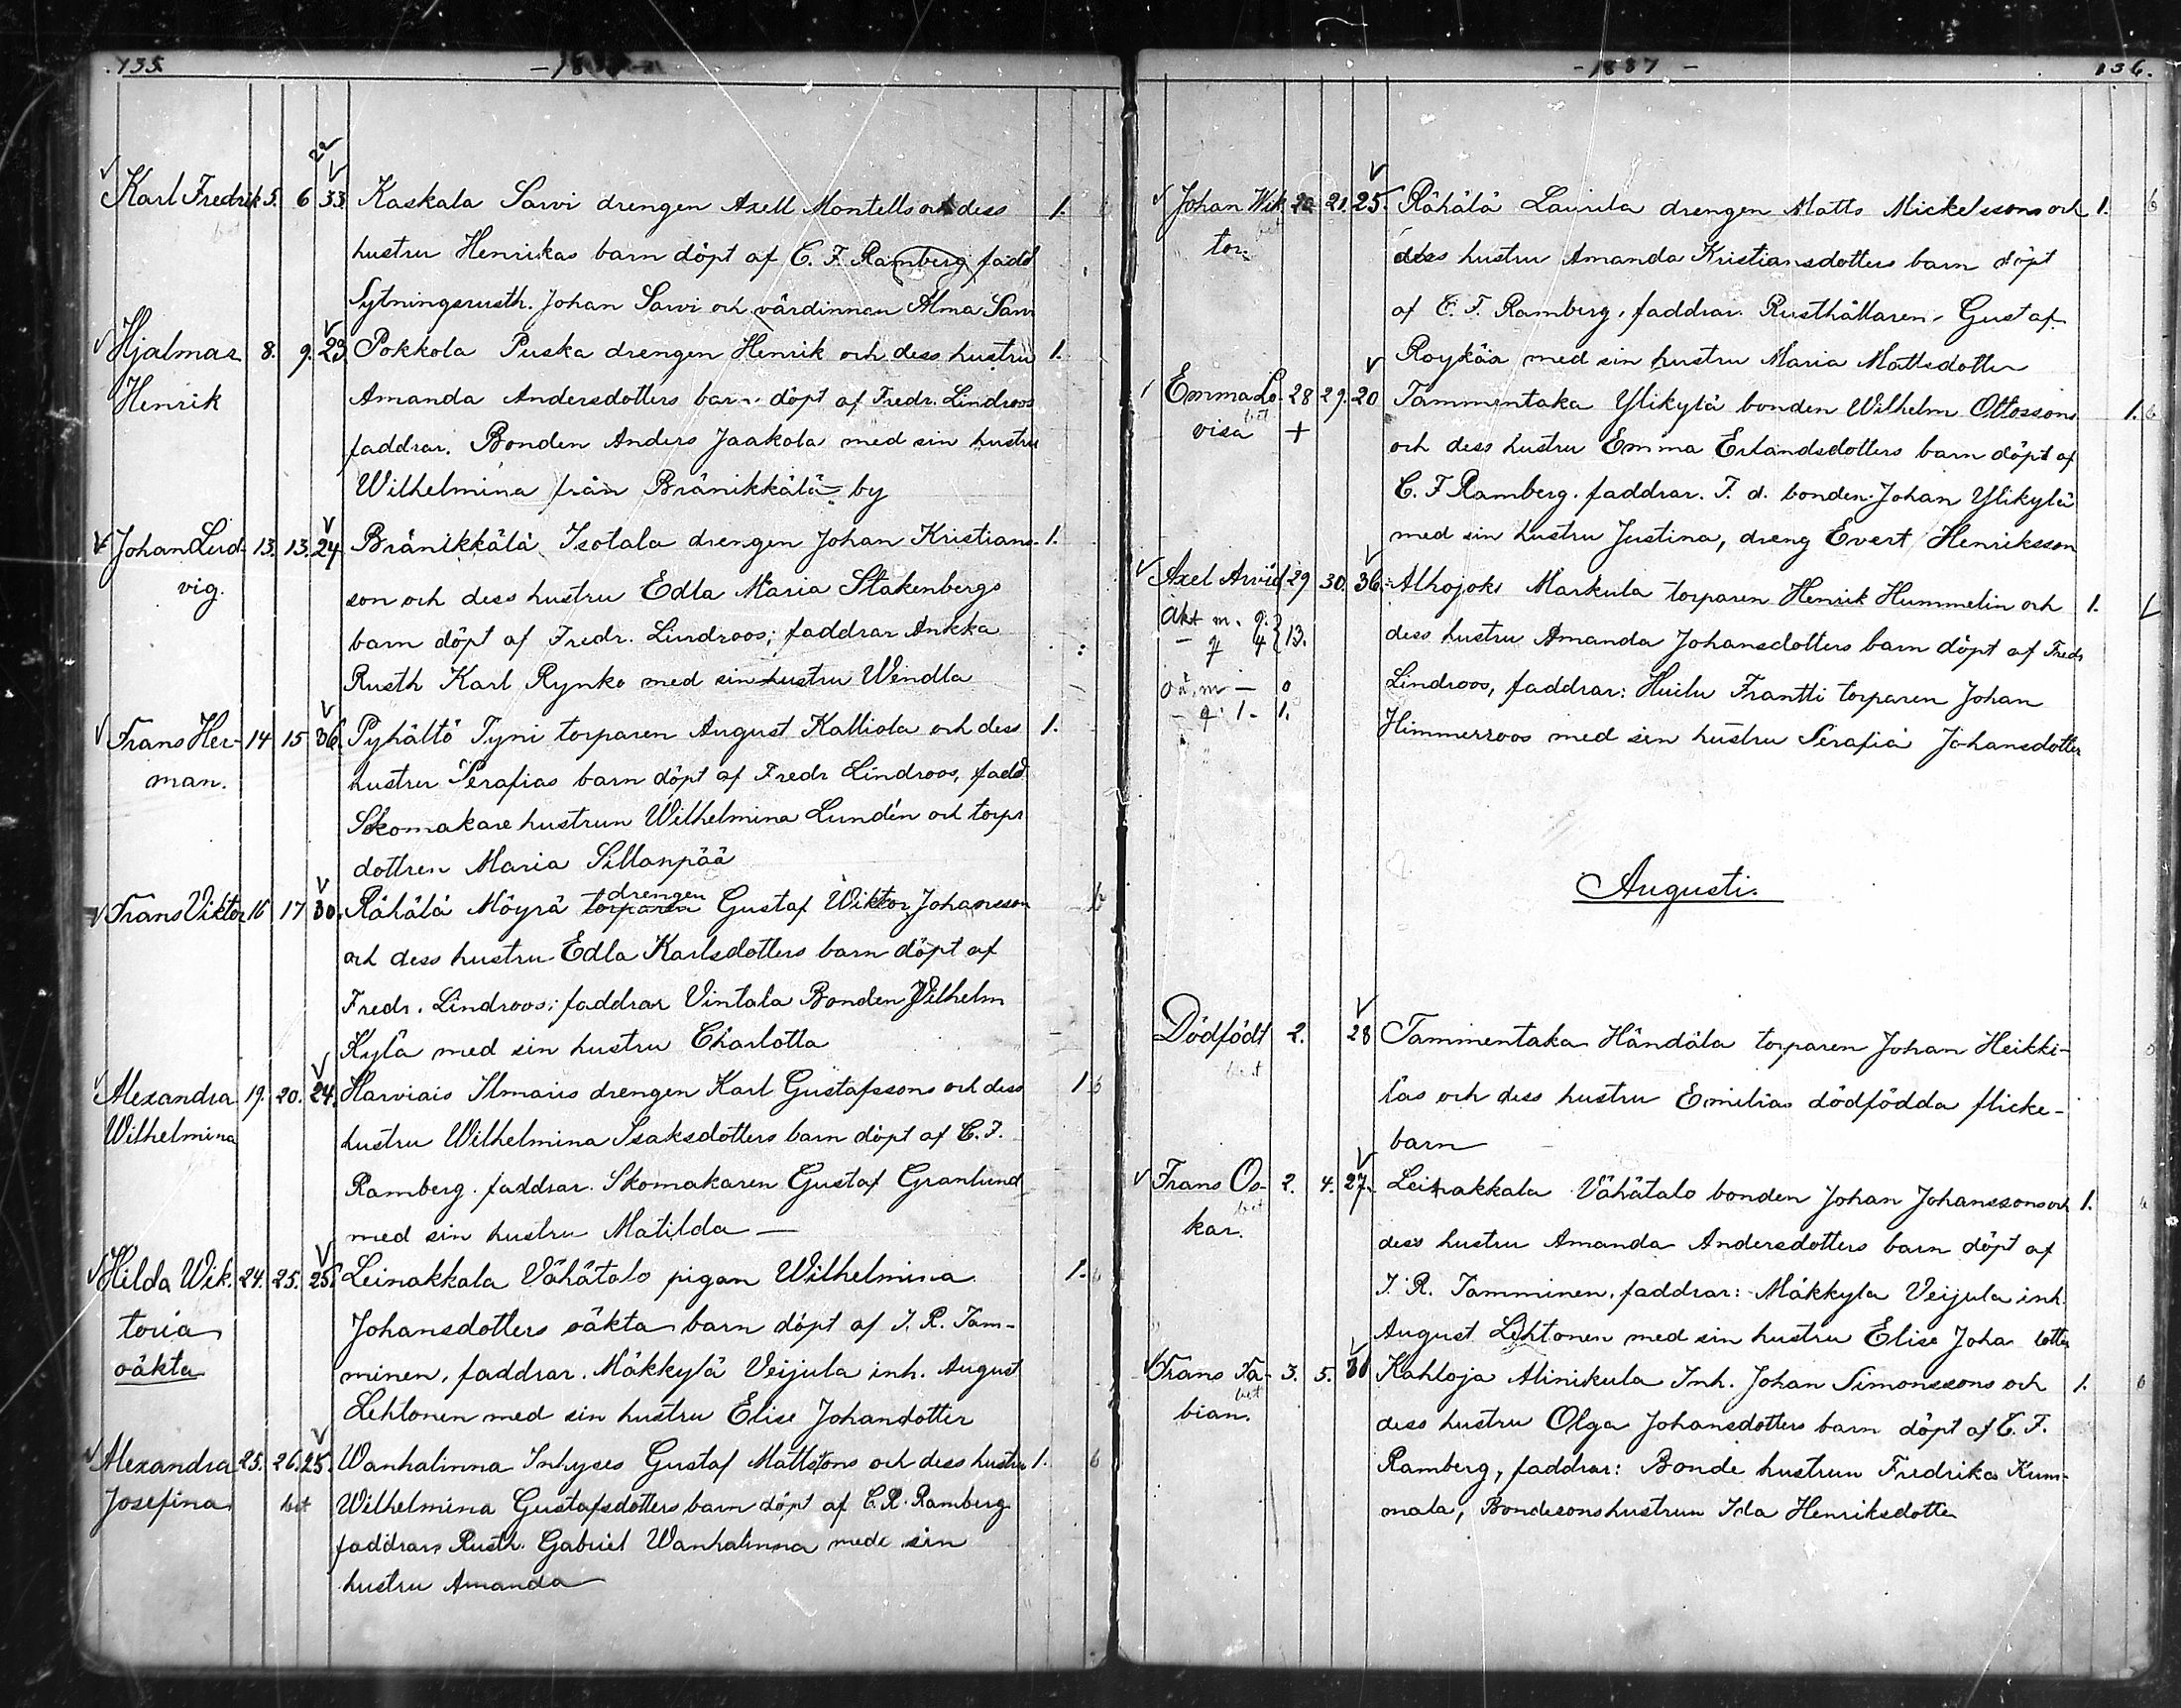 135.
Karl Fredrik 5. 6 33. Kaskala Sarvi drengen Axell Montells och dess 1.
hustru Henrikas barn döpt af C. F. Ramberg fadd
Sytningsrusth. Johan Sarvi och värdinnan Alma Sarvi
Hjalmar 8. 9. 23. Pokkola Puska drengen Henrik och dess hustru 1.
Henrik Amanda Andersdotters barn döpt af Fredr. Lindroos
faddrar. Bonden Anders Jaakola med sin hustru
Wilhelmina från Bränikkälä by
Johan Lud- 13. 13. 24. Bränikkälä Isotala drengen Johan Kristians- 1.
vig. son och dess hustru Edla Maria Stakenbergs
barn döpt af Fredr. Lindroos; faddrar Ankka
Rusth Karl Rynko med sin hustru Wendla
Frans Her- 14 15 36. Pyhältö Tyni torparen August Kalliola och dess 1.
man. hustru Serafias barn döpt af Fredr Lindroos, fadd.
Skomakare hustrun Wilhelmina Lundén och torps
dottren Maria Sillanpää
drengen
Frans Viktor 16 17 30. Rähälä Möyrä torparen Gustaf Wiktor Johansson
och dess hustru Edla Karlsdotters barn döpt af
Fredr. Lindroos; faddrar Vintala Bonden Wilhelm
Kylä med sin hustru Charlotta
Alexandra 19. 20. 24. Harviais Ilmaris drengen Karl Gustafssons och dess 1 6
Wilhelmina hustru Wilhelmina Isaksdotters barn döpt af C. F.
Ramberg. faddrar. Skomakaren Gustaf Granlund
med sin hustru Matilda —
Hilda Wik- 24. 25. 25. Leinakkala Vähätalo pigan Wilhelmina 1.
toria Johansdotters oäkta barn döpt af J. R. Tam-
oäkta minen, faddrar. Mäkkylä Veijula inh. August
Lehtonen med sin hustru Elise Johandotter
Alexandra 25. 26. 25. Wanhalinna Inhyses Gustaf Mattssons och dess hustru 1. 6
Josefina bet Wilhelmina Gustafsdotters barn döpt af C. R. Ramberg
faddrar, Rusth. Gabriel Wanhalinna med sin
hustru Amanda
- 1887 - 136.
Johan Wik- 20 21. 25. Rähälä Laurila drengen Matts Mickelssons och 1. 6
tor. dess hustru Amanda Kristiansdotters barn döpt
af C. F. Ramberg, faddrar. Rusthållaren, Gustaf
Roykää med sin hustru Maria Mattsdotter
Emma Lo- 28 29. 20 Tammentaka Ylikylä bonden Wilhelm Ottossons 1. 6
visa bet + och dess hustru Emma Erlandsdotters barn döpt af
C. F Ramberg. faddrar. F. d. bonden Johan Ylikylä
med sin hustru Justina, dreng Evert Henriksson
Axel Arvid 29 30. 36. Alhojoki Markula torparen Henrik Hummelin och 1.
Äkt m. 9. dess hustru Amanda Johansdotters barn döpt af Fredr
- q 4 } 13.
Lindroos, faddrar: Huilu Frantti torparen Johan
oä. m — 0
- q. 1 - 1.
Himmerroos med sin hustru Serafia Johansdotter
Augusti.
Dödfödt 2. 28 Tammentaka Händälä torparen Johan Heikki-
läs och dess hustru Emilias dödfödda flicke-
barn
Frans Os- 2. 4. 27. Leinakkala Vähätalo bonden Johan Johanssons och 1.
kar. bet dess hustru Amanda Andersdotters barn döpt af
J. R. Tamminen, faddrar: Mäkkyla Veijula inh.
August Lehtonen med sin hustru Elise Joha otter
Frans Fa- 3. 5. Kahloja Alinikula Inh. Johan Simonssons och 1. 6
bian. bet dess hustru Olga Johansdotters barn döpt af C. F.
Ramberg, faddrar: Bonde hustrun Fredrika Kum-
mala, Bondesonshustrun Ida Henriksdotter